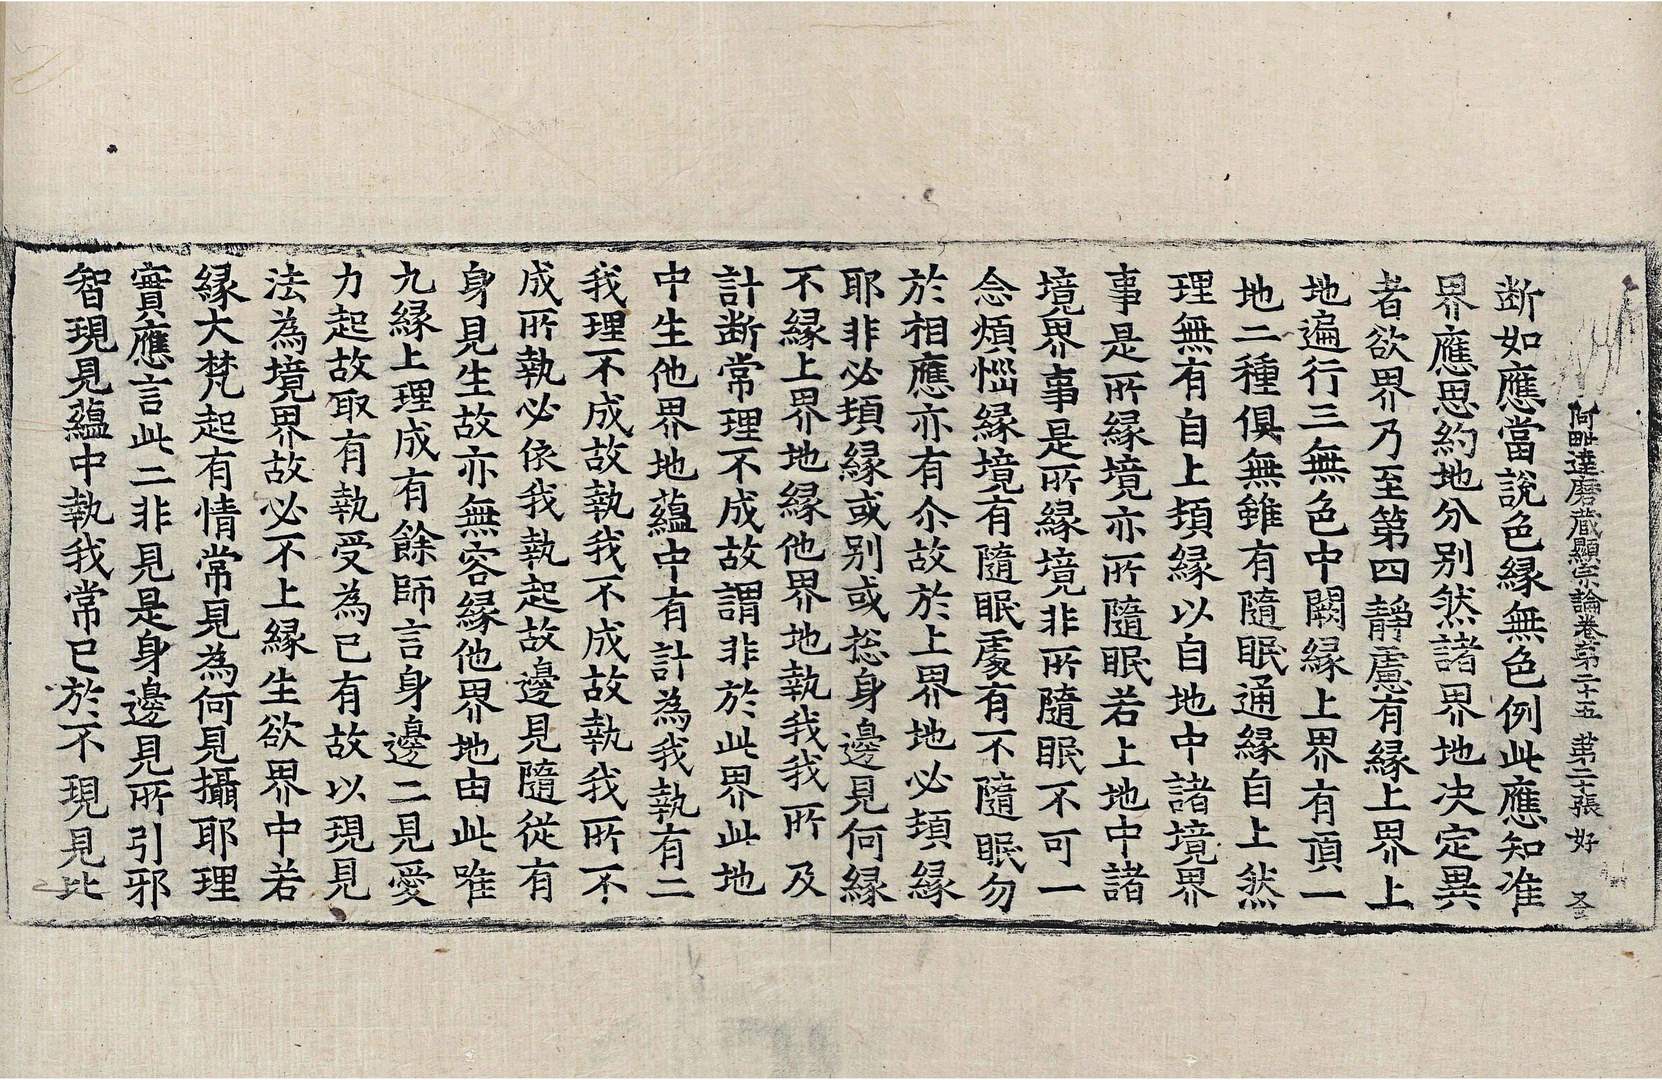 阿毗達磨藏顯宗論卷第二十五 第二十張 好
断如應當說色緣無色例此應知准
界應思約地分別然諸界地決定異
者欲界乃至第四靜慮有緣上界上
地遍行三無色中闕緣上界有頂一
地二種俱無雖有隨眠通緣自上然
理無有自上頓緣以自地中諸境界
事是所緣境亦所隨眠若上地中諸
境界事是所緣境非所隨眠不可一
念煩惱緣境有隨眠處有不隨眠勿
於相應亦有尒故於上界地必頓緣
耶非必頓緣或別或捴身邊見何緣
不緣上界地緣他界地執我我所及
計断常理不成故謂非於此界此地
中生他界地蘊中有計為我執有二
我理不成故執我不成故執我所不
成所執必依我執起故邊見隨從有
身見生故亦無容緣他界地由此唯
九緣上理成有餘師言身邊二見愛
力起故取有執受為己有故以現見
法為境界故必不上緣生欲界中若
緣大梵起有情常見為何見攝耶理
實應言此二非見是身邊見所引邪
智現見蘊中執我常已於不現見比